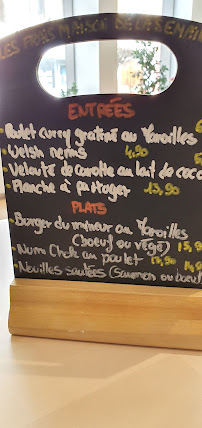 LES PLATS MAISON DE LA SEMAINE
ENTRÉES
Poulet curry gratiné au Maroilles
Welsh nems 4,90
Velouté de carotte au lait de coco
Planche à partager 13,90
PLATS
Burger du mineur au Maroilles
(boeuf ou végé) 15,
Num Chok au poulet
Nouilles sautées (saumon ou boeuf)